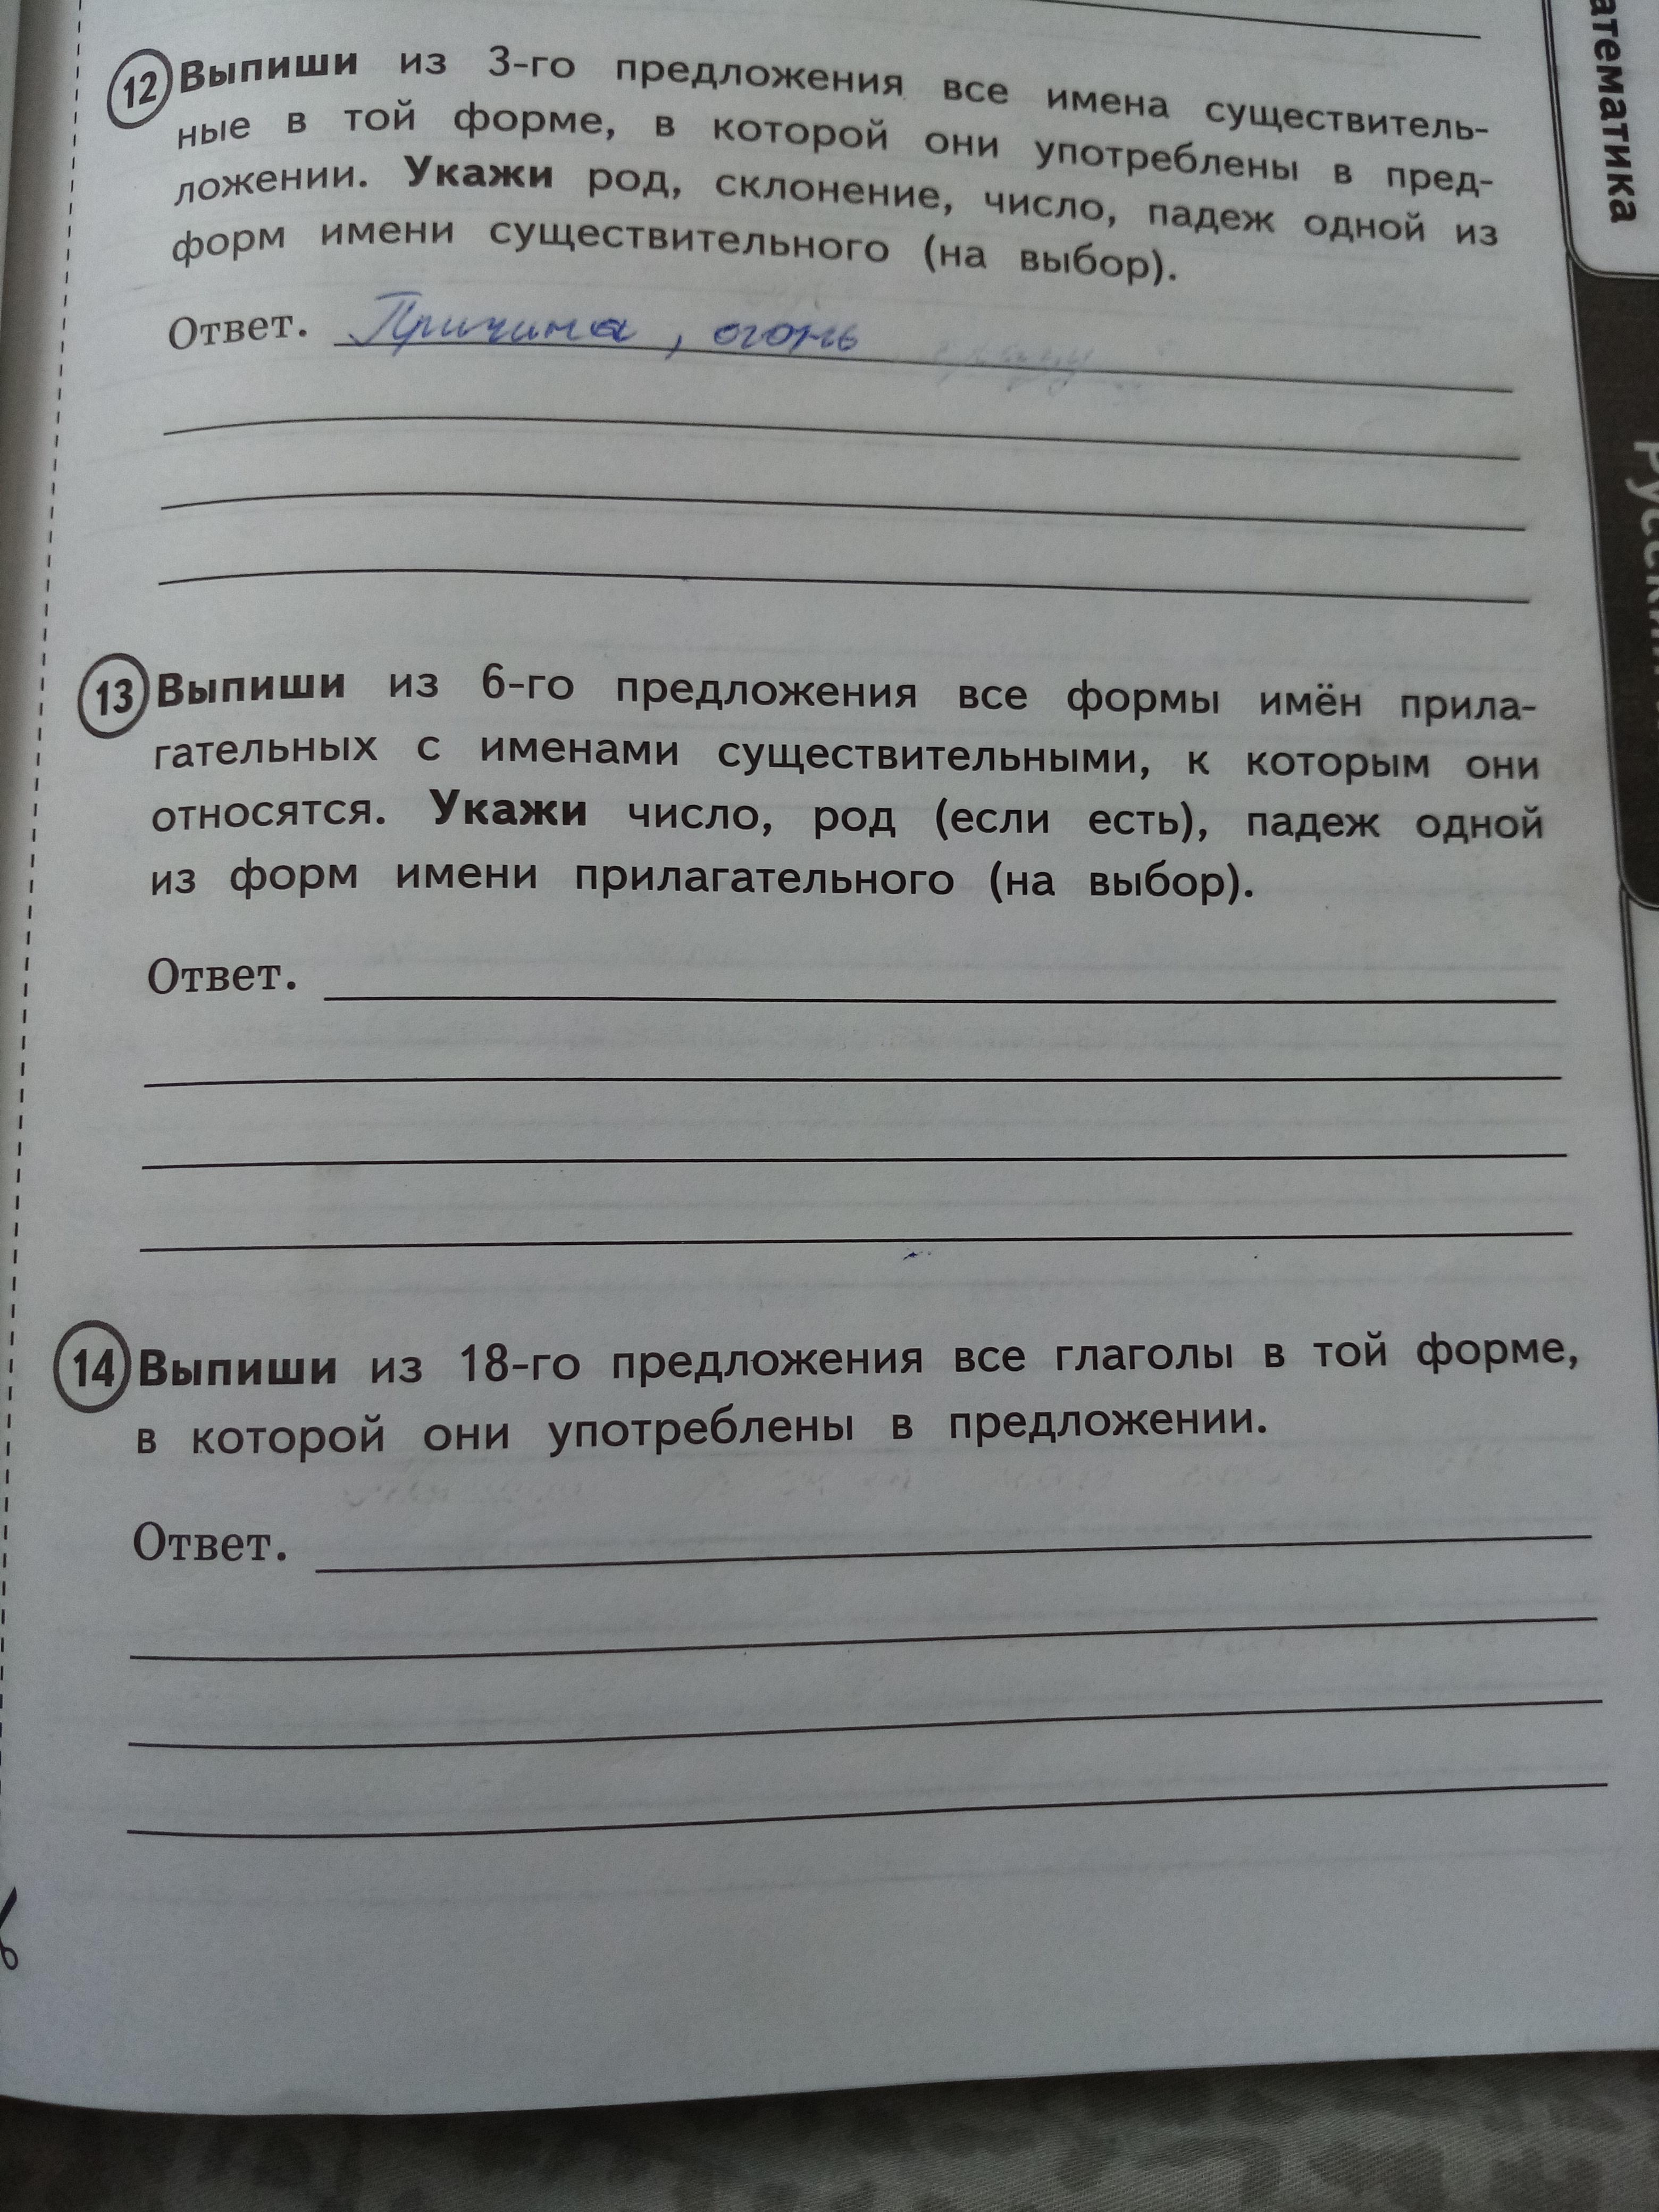 12 Выпиши из 3-го предложения все имена существитель-
ные в той форме, в которой они употреблены в пред-
ложении. Укажи род, склонение, число, падеж одной из
форм имени существительного (на выбор).
Ответ. Причина, огонь
13 Выпиши из 6-го предложения все формы имён прила-
гательных с именами существительными, к которым они
относятся. Укажи число, род (если есть), падеж одной
из форм имени прилагательного (на выбор).
Ответ.
14 Выпиши из 18-го предложения все глаголы в той форме,
в которой они употреблены в предложении.
Ответ.
атематика
Русский